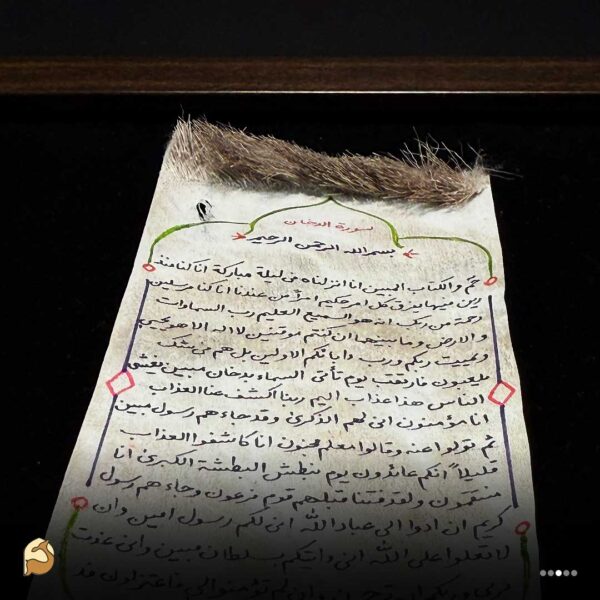 سورة الدخان
بسم الله الرحمن الرحيم
حم والكتاب المبين انا انزلناه في ليلة مباركة انا كنا منذ
رين فيها يفرق كل امر حكيم امرا من عندنا انا كنا مرسلين
رحمة من ربك انه هو السميع العليم رب السمادات
والارض وما بينهما ان كنتم موقنين لا اله الا هو يحيي
ويميت ربكم ورب ءابائكم الاولين بل هم في شك
يلعبون فارتقب يوم تأتي السماء بدخان مبين يغشى
الناس هذا عذاب اليم ربنا اكشف عنا العذاب
انا مؤمنون انى لهم الذكرى وقد جاءهم رسول مبين
ثم تولوا عنه وقالوا معلم مجنون انا كاشفوا العذاب
قليلاً انكم عائدون يوم نبطش البطشة الكبرى انا
منتقمون ولقد فتنا قبلهم قوم فرعون وجاءهم رسول
كريم ان ادوا الي عباد الله اني لكم رسول امين وان
لا تعلوا على الله اني ءاتيكم بسلطان مبين واني عذت
بربي وربكم ان ترجمون وان لم تؤمنوا لي فاعتزلون فد